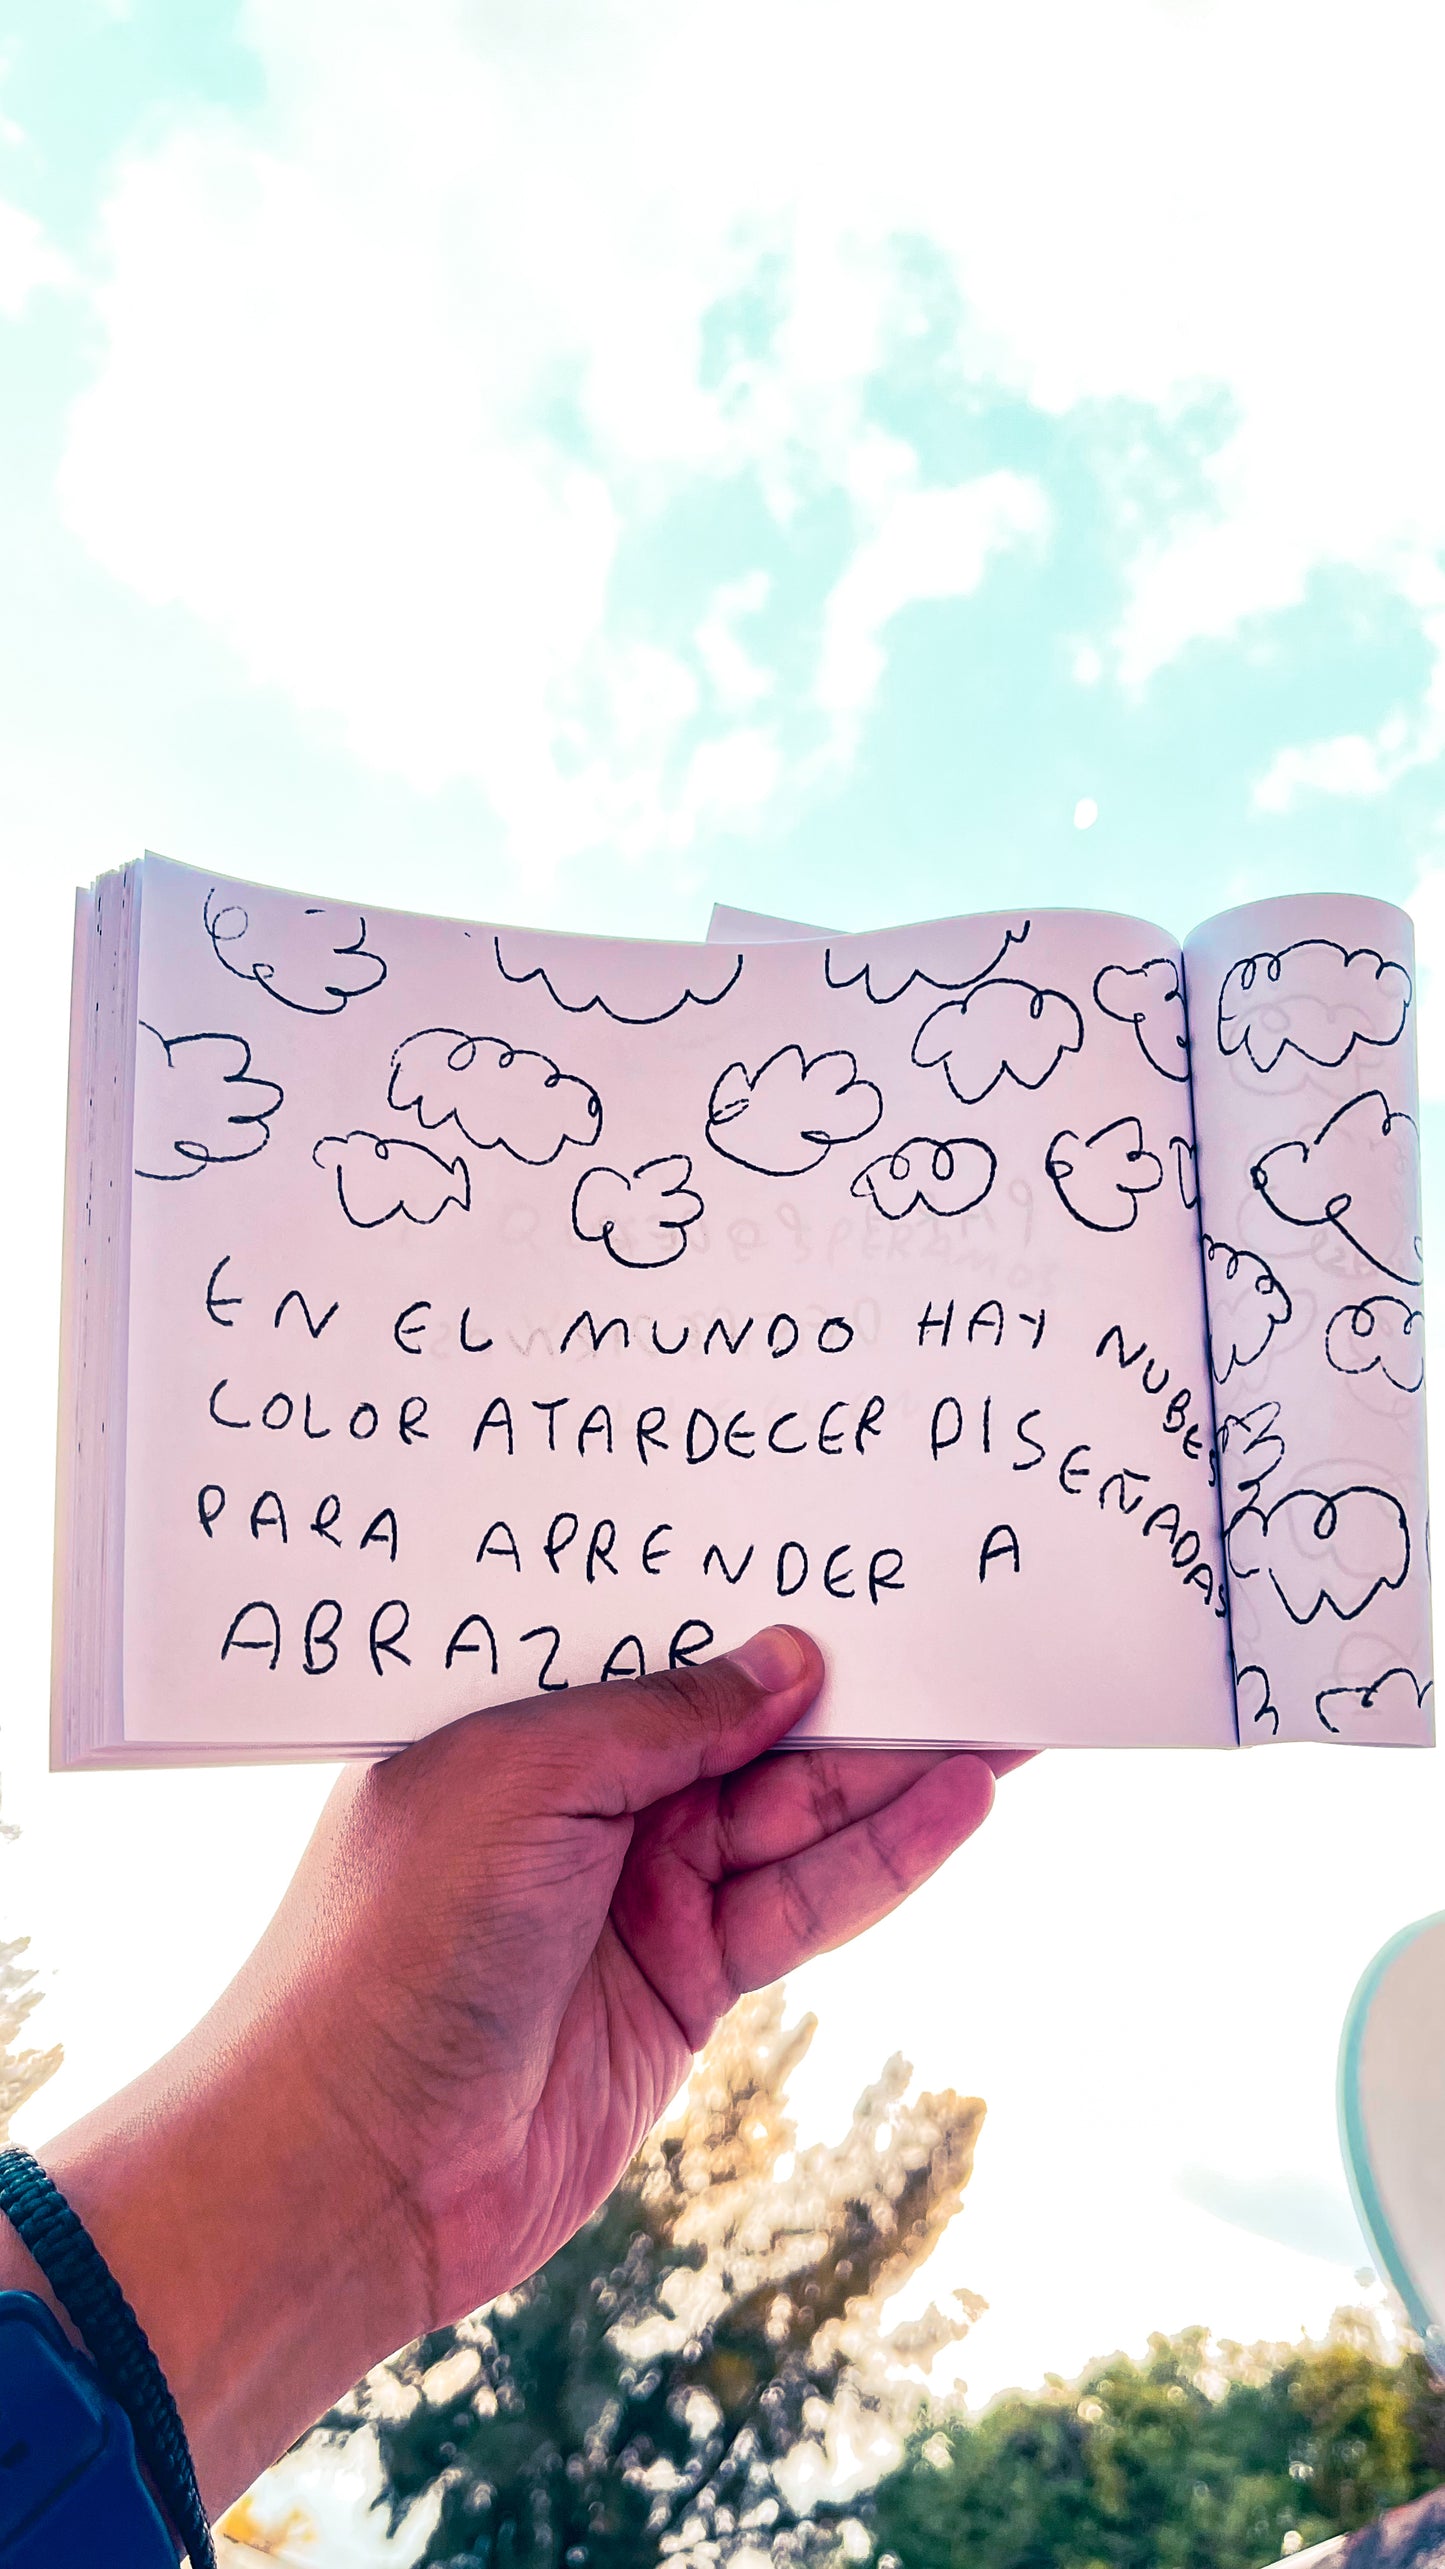 EN EL MUNDO HAY NUBES
COLOR ATARDECER DISEÑADAS
PARA APRENDER A
ABRAZAR